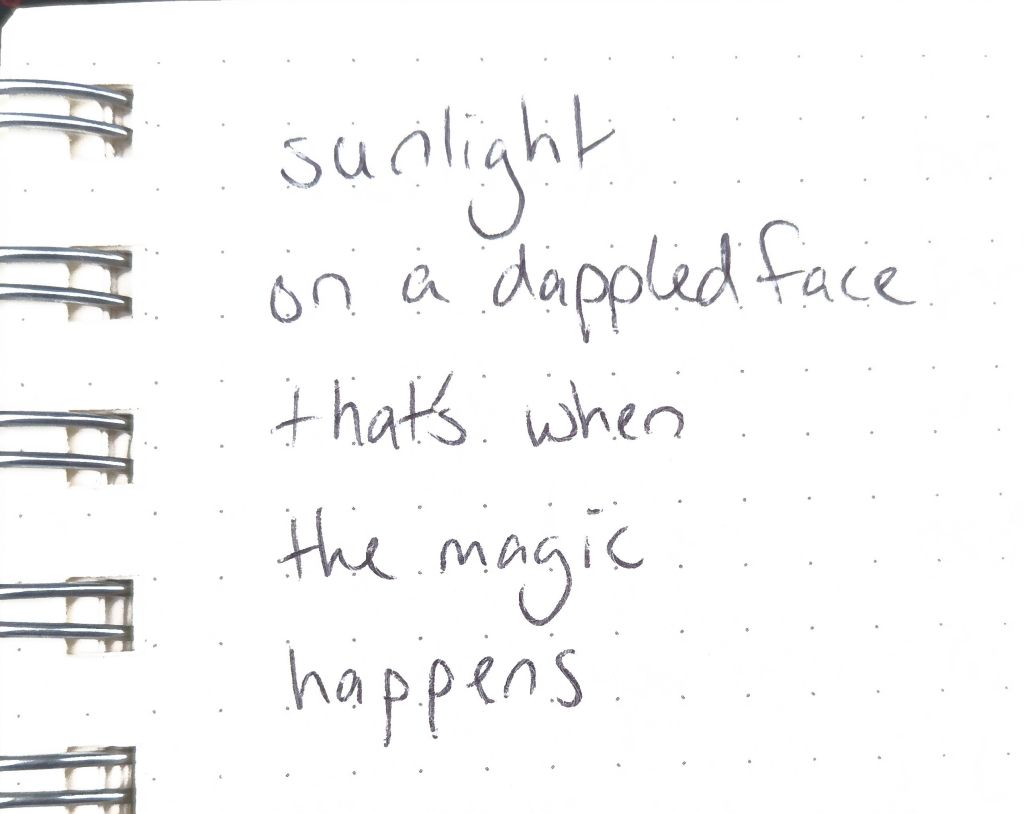 sunlight
on a dappled face
that's when
the magic
happens